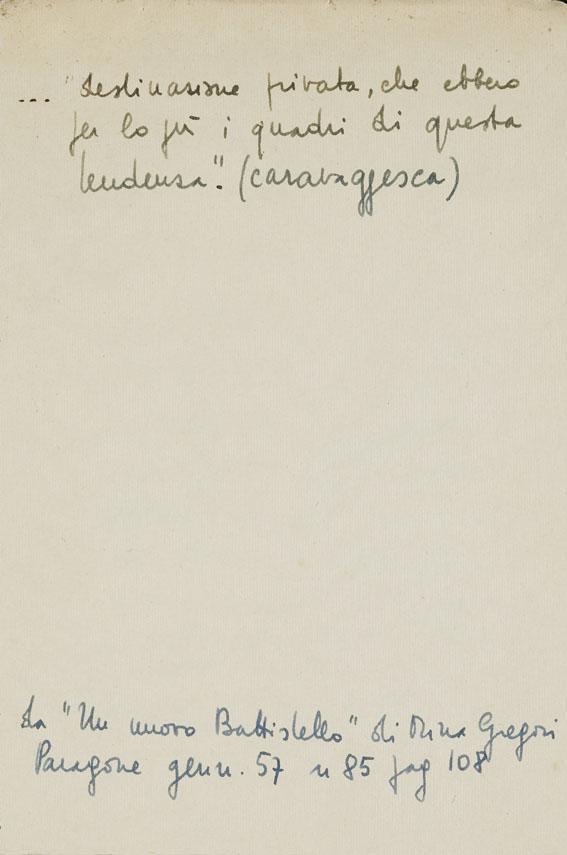 ... "destinazione privata, che ebbero
per lo più i quadri di questa
tendenza". (caravaggesca)
da "Un nuovo Battistello" di Mina Gregori
Paragone genn. 57 n 85 pag 108